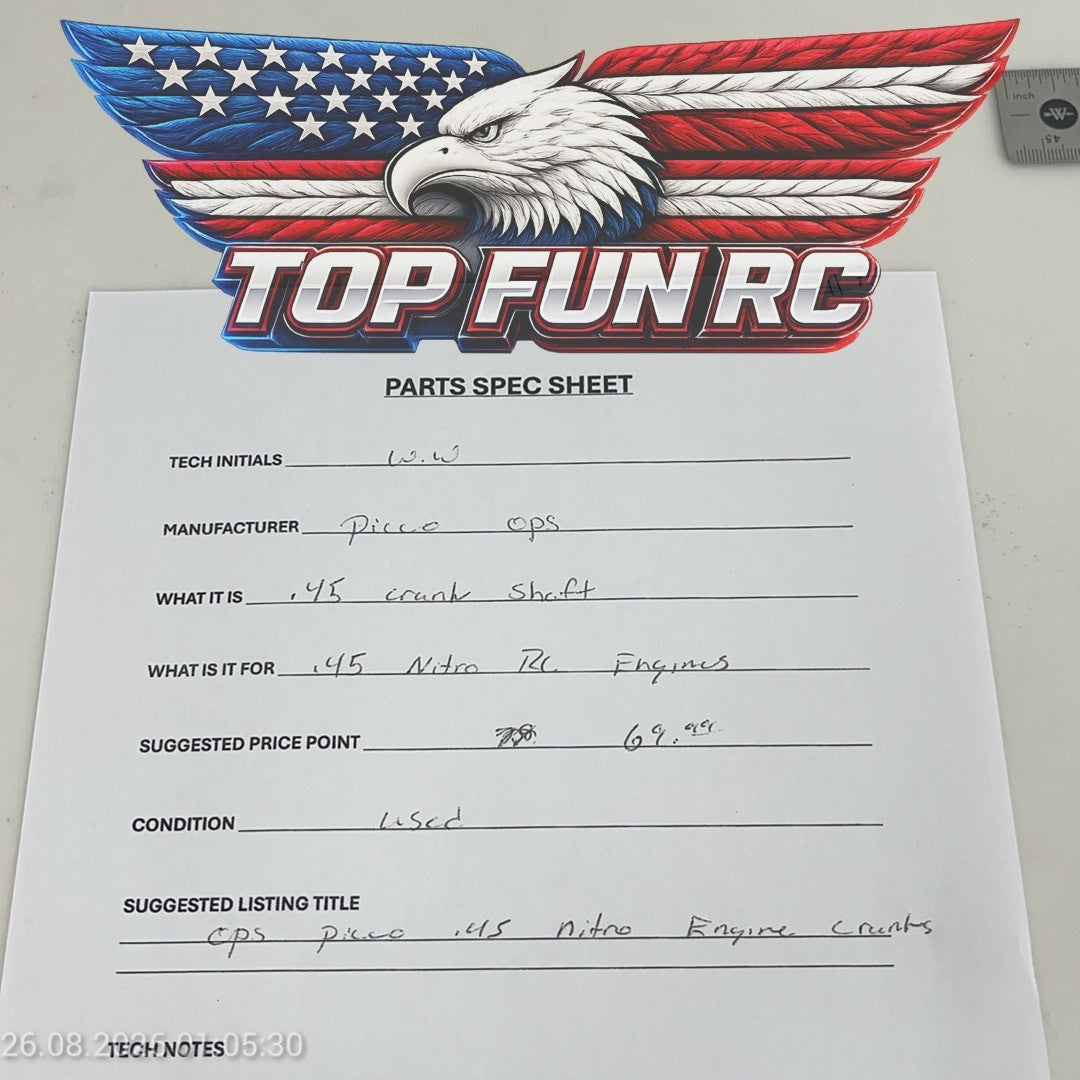 inch
W
45
TOP FUN RC
PARTS SPEC SHEET
TECH INITIALS W.W
MANUFACTURER Picco OPS
WHAT IT IS .45 crank shaft
WHAT IS IT FOR .45 Nitro RC Engines
SUGGESTED PRICE POINT 69.99
CONDITION used
SUGGESTED LISTING TITLE
OPS Picco .45 nitro Engine Cranks
TECH NOTES
26.08.2026 01:05:30